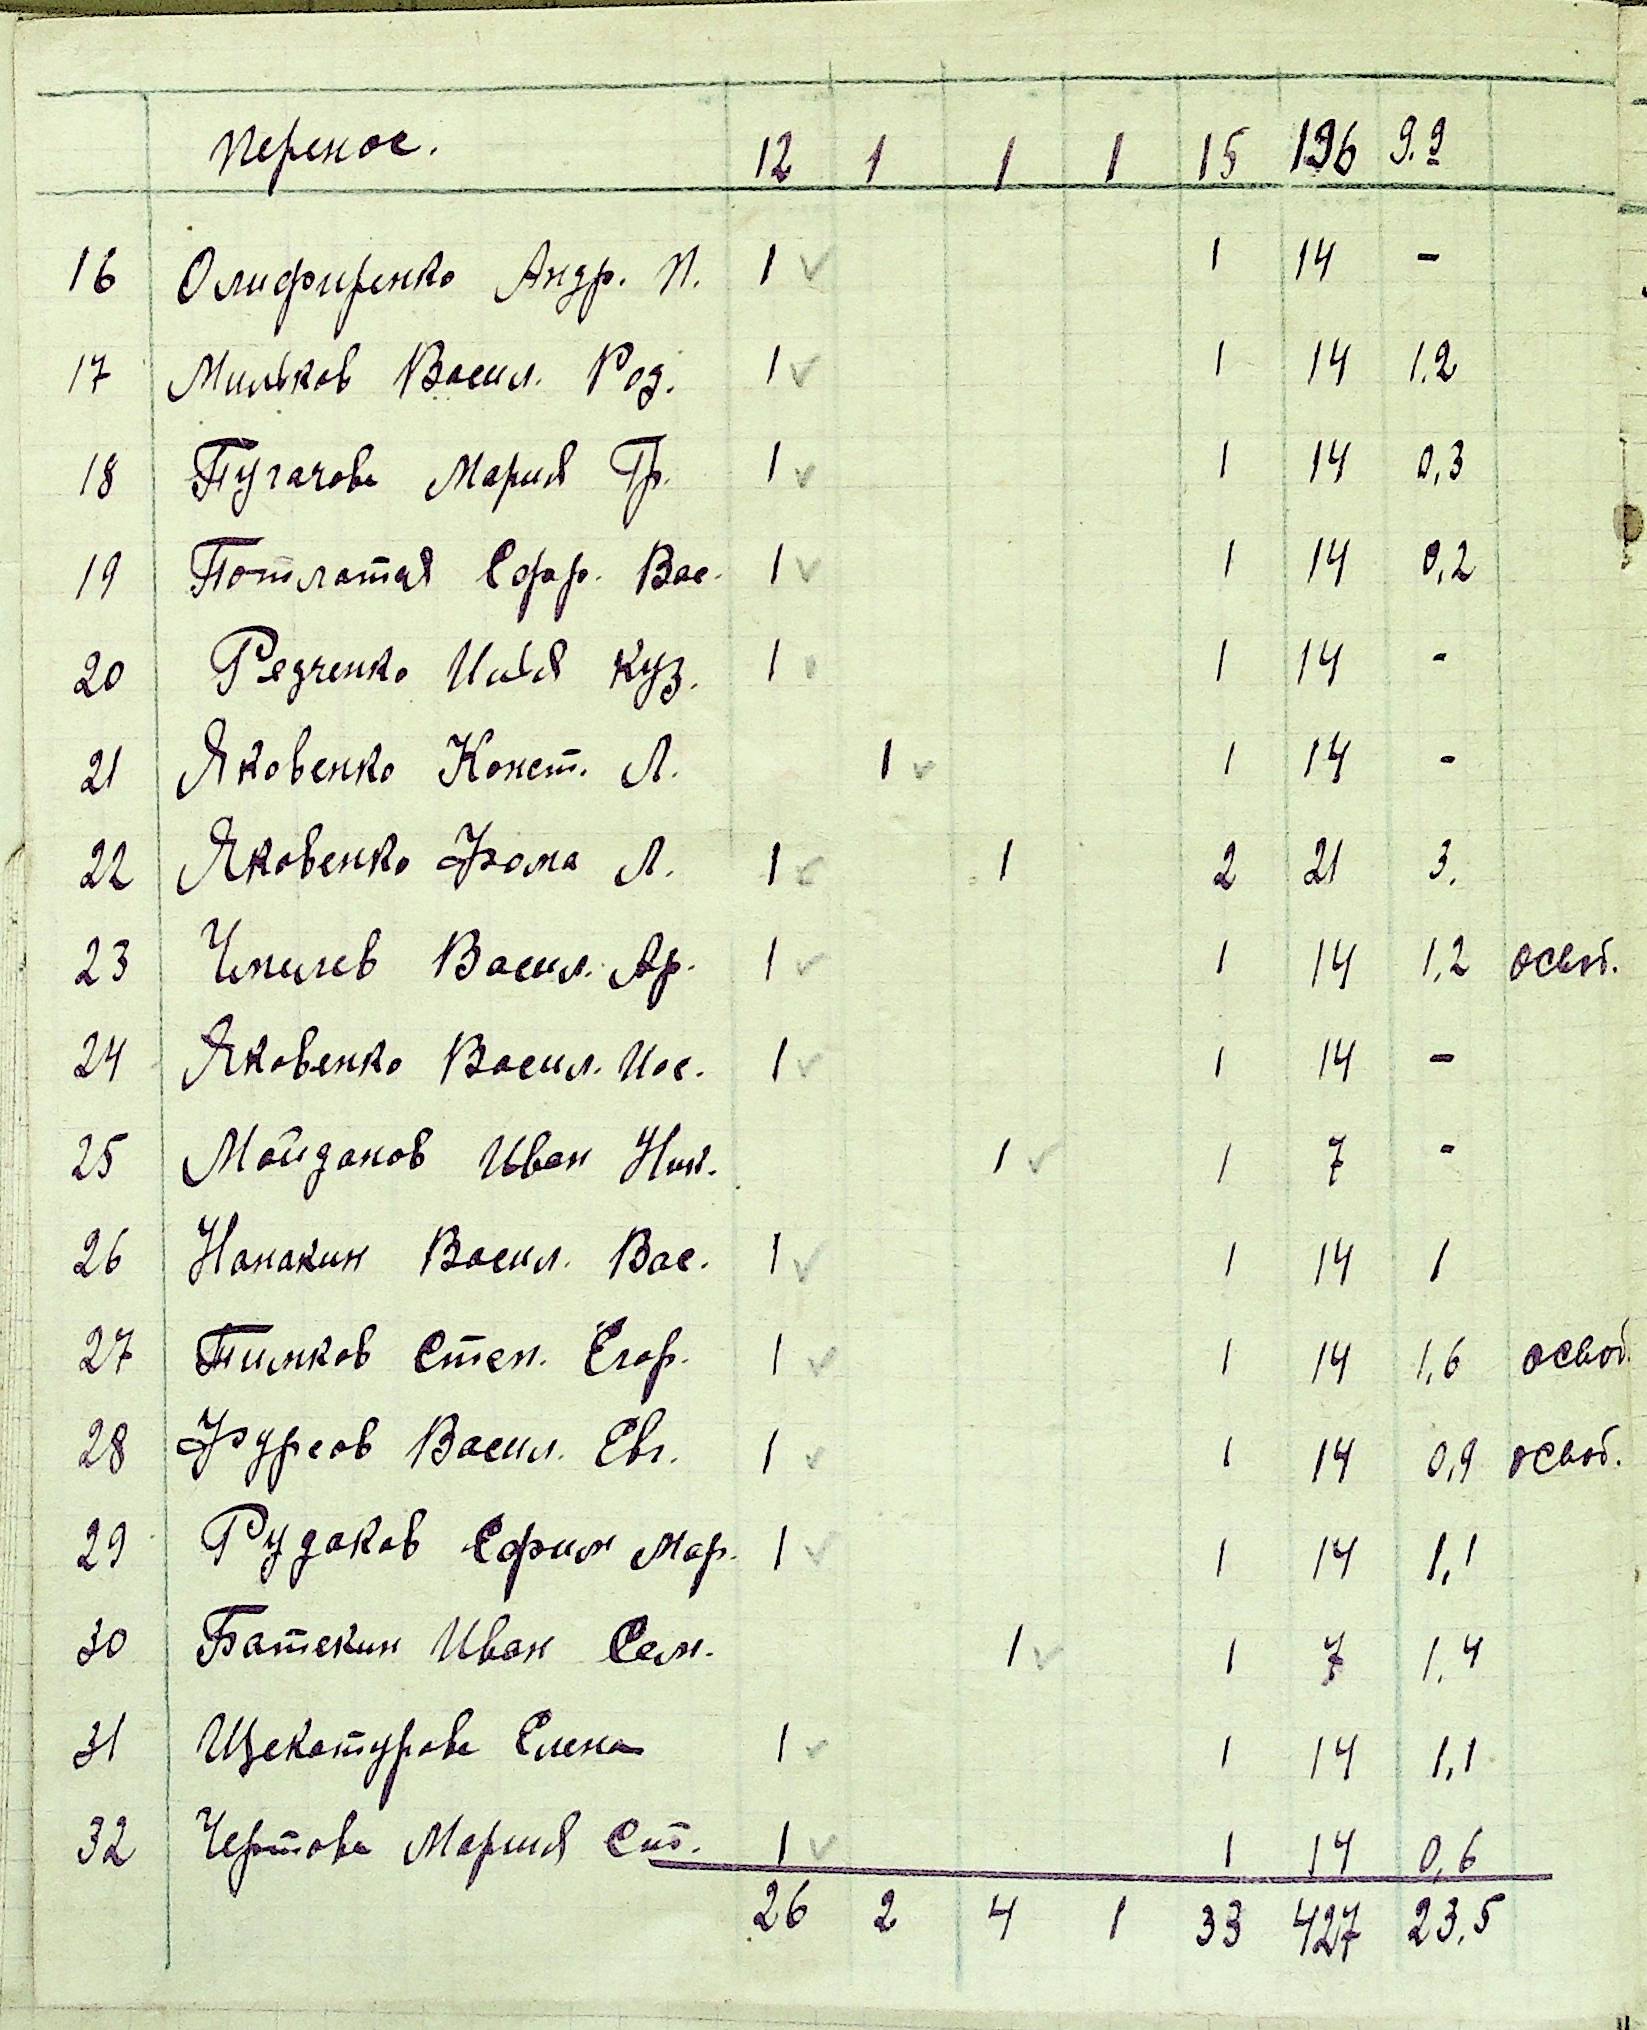 Перенос. 12 1 1 1 15 196 9.9
16 Олифиренко Андр. П. 1 1 14 -
17 Мильков Васил. Род. 1 1 14 1.2
18 Пугачова Мария Гр. 1 1 14 0,3
19 Потлатая Ефр. Вас. 1 1 14 0,2
20 Редченко Илья Куз. 1 1 14 -
21 Яковенко Конст. Л. 1 1 14 -
22 Яковенко Фома Л. 1 1 2 21 3.
23 Васил. Ар. 1 1 14 1,2 освоб.
24 Яковенко Васил. Иос. 1 1 14 -
25 Майданов Иван Ник. 1 1 7 -
26 Канакин Васил. Вас. 1 1 14 1
27 Пимков Степ. Егор. 1 1 14 1,6 освоб.
28 Фурсов Васил. Евг. 1 1 14 0,9 освоб.
29 Рудаков Ефим Мар. 1 1 14 1,1
30 Батекин Иван Сем. 1 1 7 1,4
31 Щекатурова Елена 1 1 14 1,1
32 Чертова Мария 1 1 14 0,6
26 2 4 1 33 427 23,5